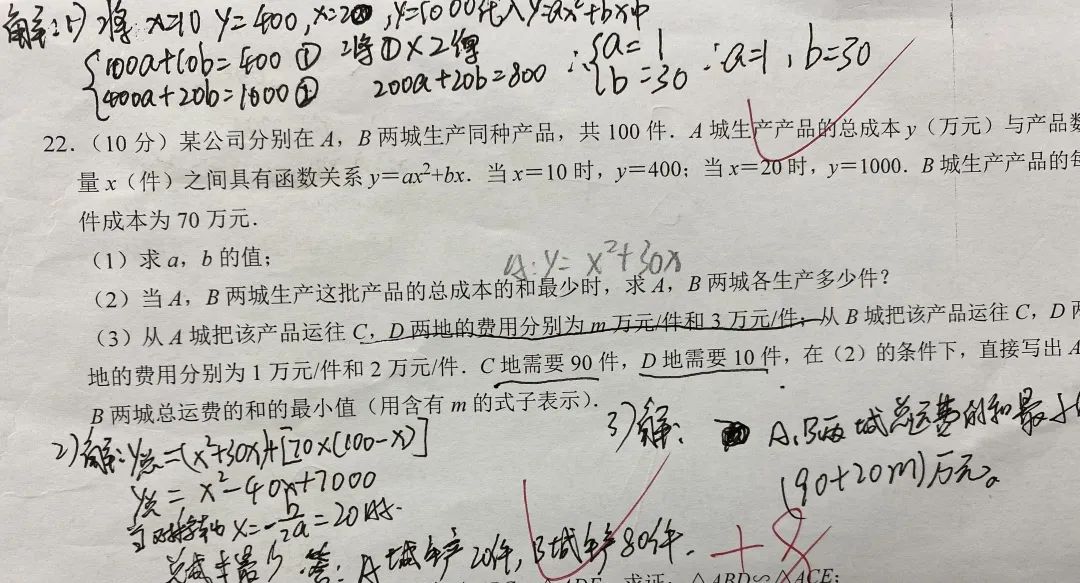 解:(1)将x=10 y=400,x=20,y=1000代入y=ax²+bx中
{100a+10b=400① 将①×2得
{400a+20b=1000② 200a+20b=800 ∴{a=1 b=30 ∴a=1,b=30
22.(10分)某公司分别在A,B两城生产同种产品,共100件.A城生产产品的总成本y(万元)与产品数
量x(件)之间具有函数关系y=ax²+bx.当x=10时,y=400;当x=20时,y=1000.B城生产产品的每
件成本为70万元.
(1)求a,b的值;
A:y=x²+30x
(2)当A,B两城生产这批产品的总成本的和最少时,求A,B两城各生产多少件?
(3)从A城把该产品运往C,D两地的费用分别为m万元/件和3万元/件;从B城把该产品运往C,D两
地的费用分别为1万元/件和2万元/件.C地需要90件,D地需要10件,在(2)的条件下,直接写出A
B两城总运费的和的最小值(用含有m的式子表示).
2)解:y总=(x²+30x)+[70×(100-x)]
y总=x²-40x+7000
x=-b/2a=20时.
总成本最少.答:A城生产20件,B城生产80件.
3)解:A,B两城总运费的和最小
(90+20m)万元。
+8
求证:△ABD∽△ACE;